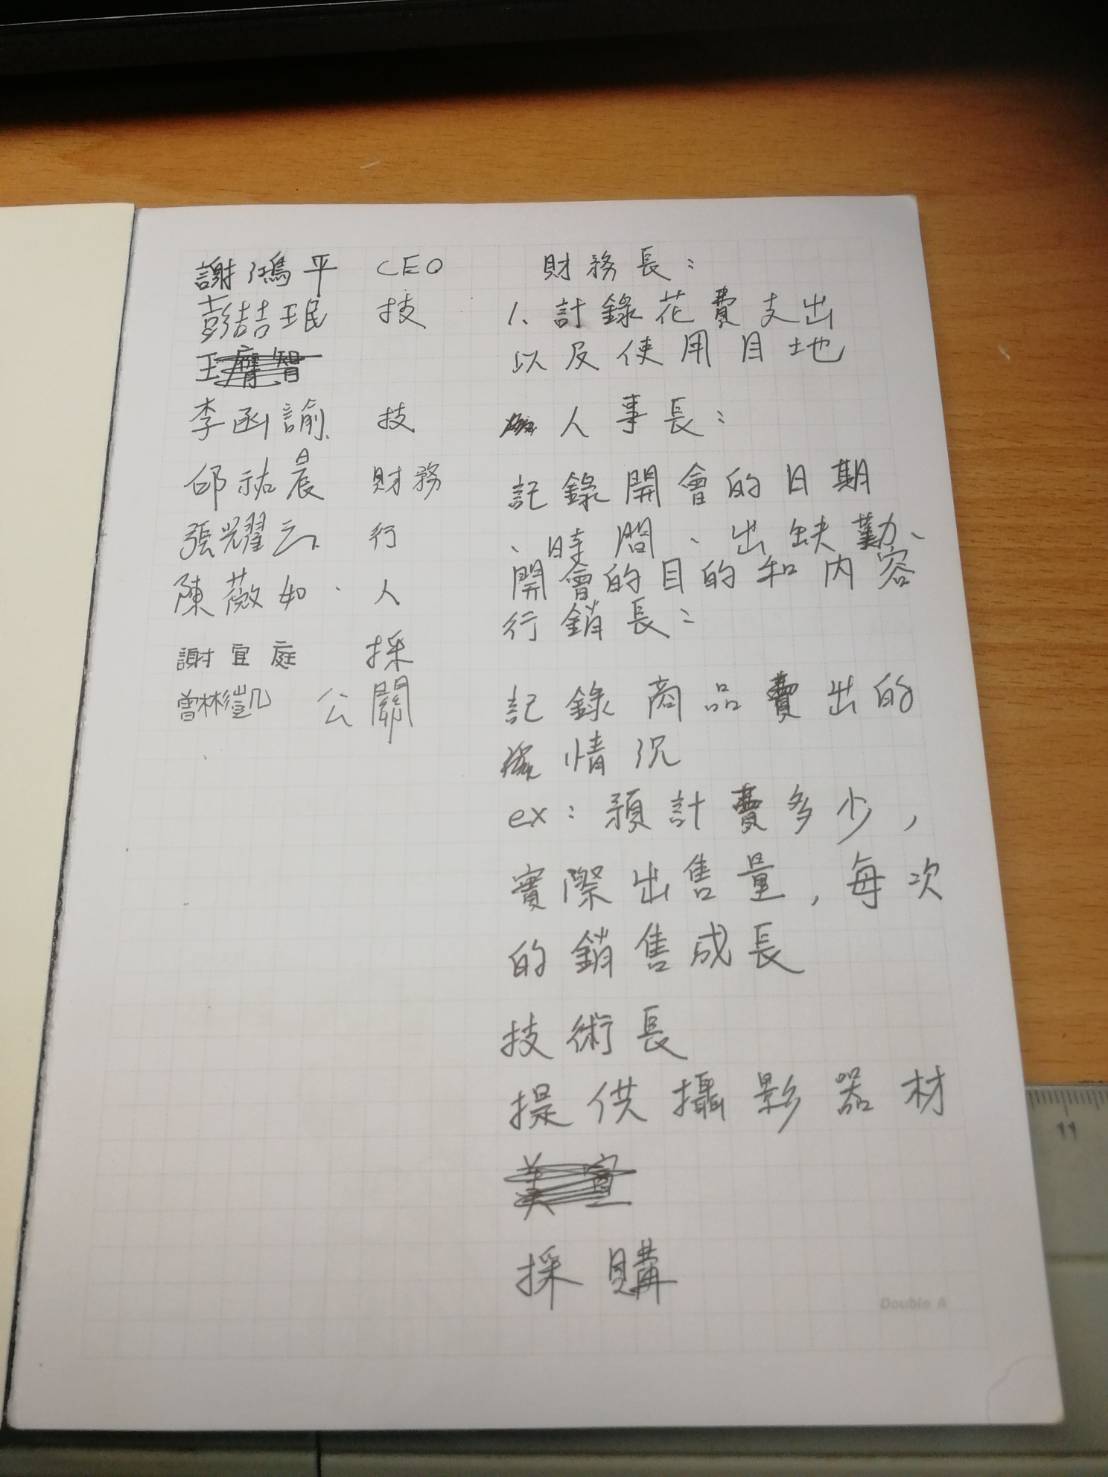 謝鴻平 CEO
彭喆珉 技
王
李函諭 技
邱祐晨 財務
張耀云 行
陳薇如 人
謝宜庭 採
曾彬凱 公關
財務長：
1、計錄花費支出
以及使用目地
人事長：
記錄開會的日期
、時間、出缺勤、
開會的目的和內容
行銷長：
記錄商品賣出的
情況
ex：預計賣多少，
實際出售量，每次
的銷售成長
技術長
提供攝影器材
美宣
採購
Double A
11